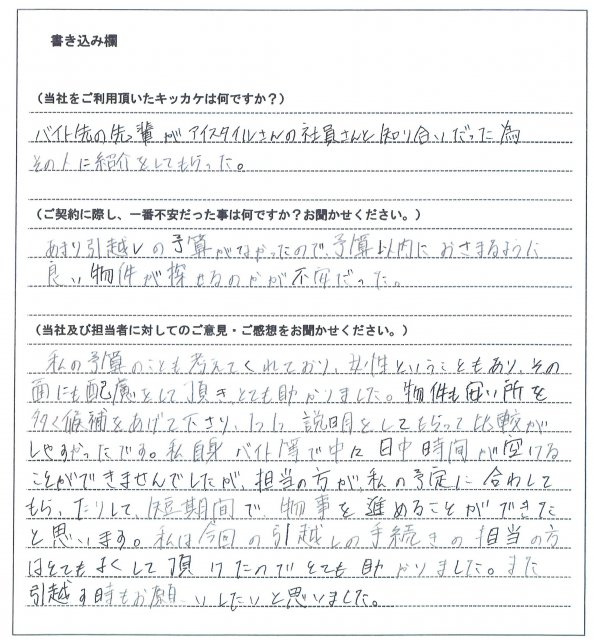 書き込み欄
（当社をご利用頂いたキッカケは何ですか？）
バイト先の先輩がアイスタイルさんの社員さんと知り合いだった為
その人に紹介をしてもらった。
（ご契約に際し、一番不安だった事は何ですか？お聞かせください。）
あまり引越しの予算がなかったので、予算以内におさまるように
良い物件が探せるのかが不安だった。
（当社及び担当者に対してのご意見・ご感想をお聞かせください。）
私の予算のことも考えてくれており、女性ということもあり、その
面にも配慮をして頂き、とても助かりました。物件も良い所を
多く候補をあげて下さり、1つ1つ説明をしてもらって比較が
しやすかったです。私自身バイト等で中々日中時間が空ける
ことができませんでしたが、担当の方が、私の予定に合わして
もらったりして、短期間で、物事を進めることができた
と思います。私は今回の引越しの手続きの担当の方
はとてもよくして頂けたのでとても助かりました。また
引越す時もお願いしたいと思いました。